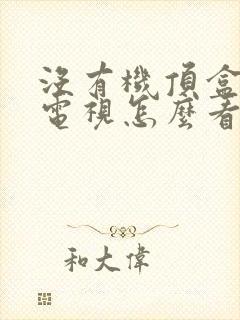 沒有機頂盒
電視怎麼看
和大偉